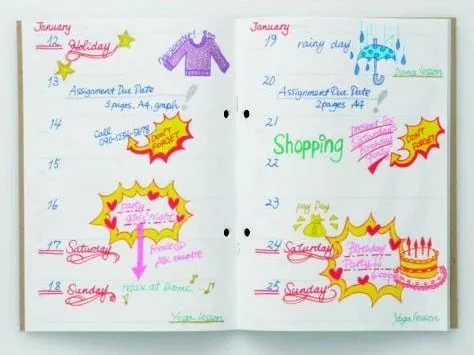 January
12 Holiday
13
Assignment Due Date
3 pages, A4, graph
!
14
Call
090-1234-5678
DON'T
FORGET
15
16
party
girls night
17 Saturday
ABC
18 Sunday
relax at home
Yoga lesson
January
19
rainy day
Dance lesson
20
Assignment Due Date
2 pages A4
!
21
Shopping
present for
Saturday
Birthday
Party
DON'T
FORGET
22
23
pay Day
24 Saturday
Birthday
Party
25 Sunday
Yoga lesson